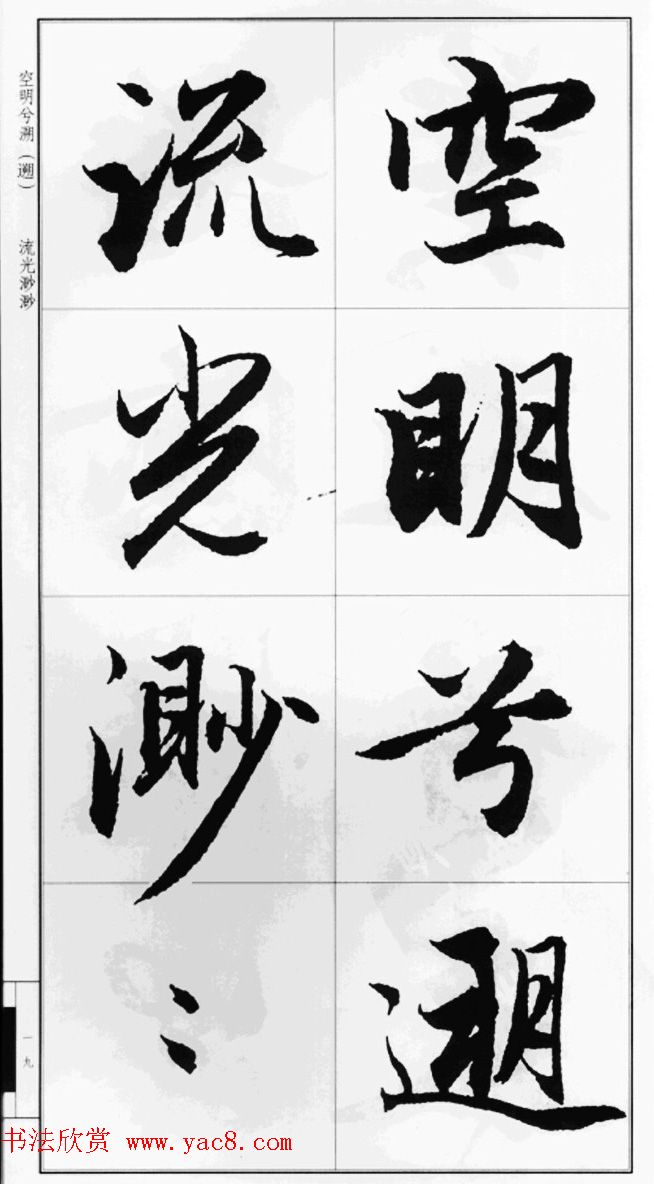 空明兮遡
流光渺〻
空明兮溯（遡） 流光渺渺
一九
书法欣赏 www.yac8.com